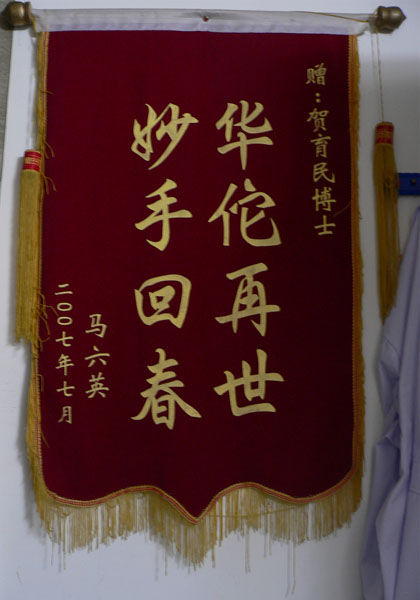 赠:贺育民博士
华佗再世
妙手回春
马六英
二〇〇七年七月